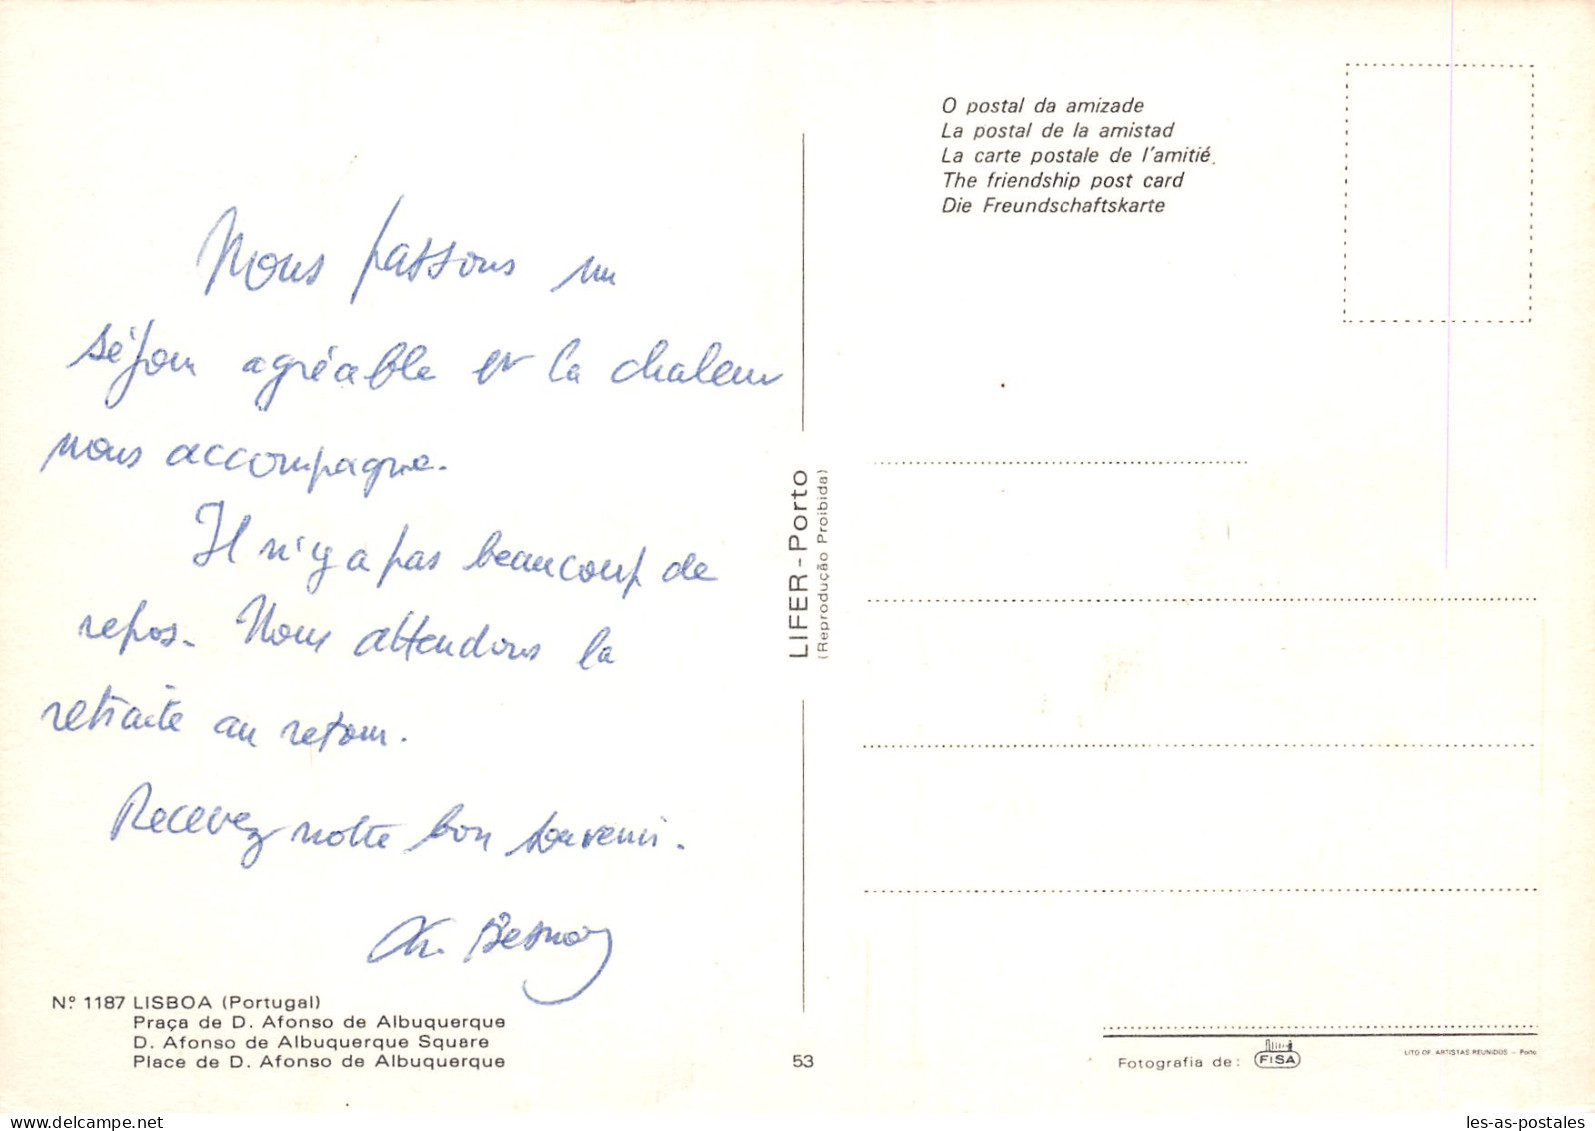 Nous passons un
séjour agréable et la chaleur
nous accompagne.
Il n'y a pas beaucoup de
repos. Nous attendons la
retraite au retour.
Recevez notre bon souvenir.
Nº 1187 LISBOA (Portugal)
Praça de D. Afonso de Albuquerque
D. Afonso de Albuquerque Square
Place de D. Afonso de Albuquerque
LIFER - Porto
(Reprodução Proibida)
53
O postal da amizade
La postal de la amistad
La carte postale de l'amitié
The friendship post card
Die Freundschaftskarte
Fotografia de: FISA
LITO OF. ARTISTAS REUNIDOS - Porto
les-as-postales